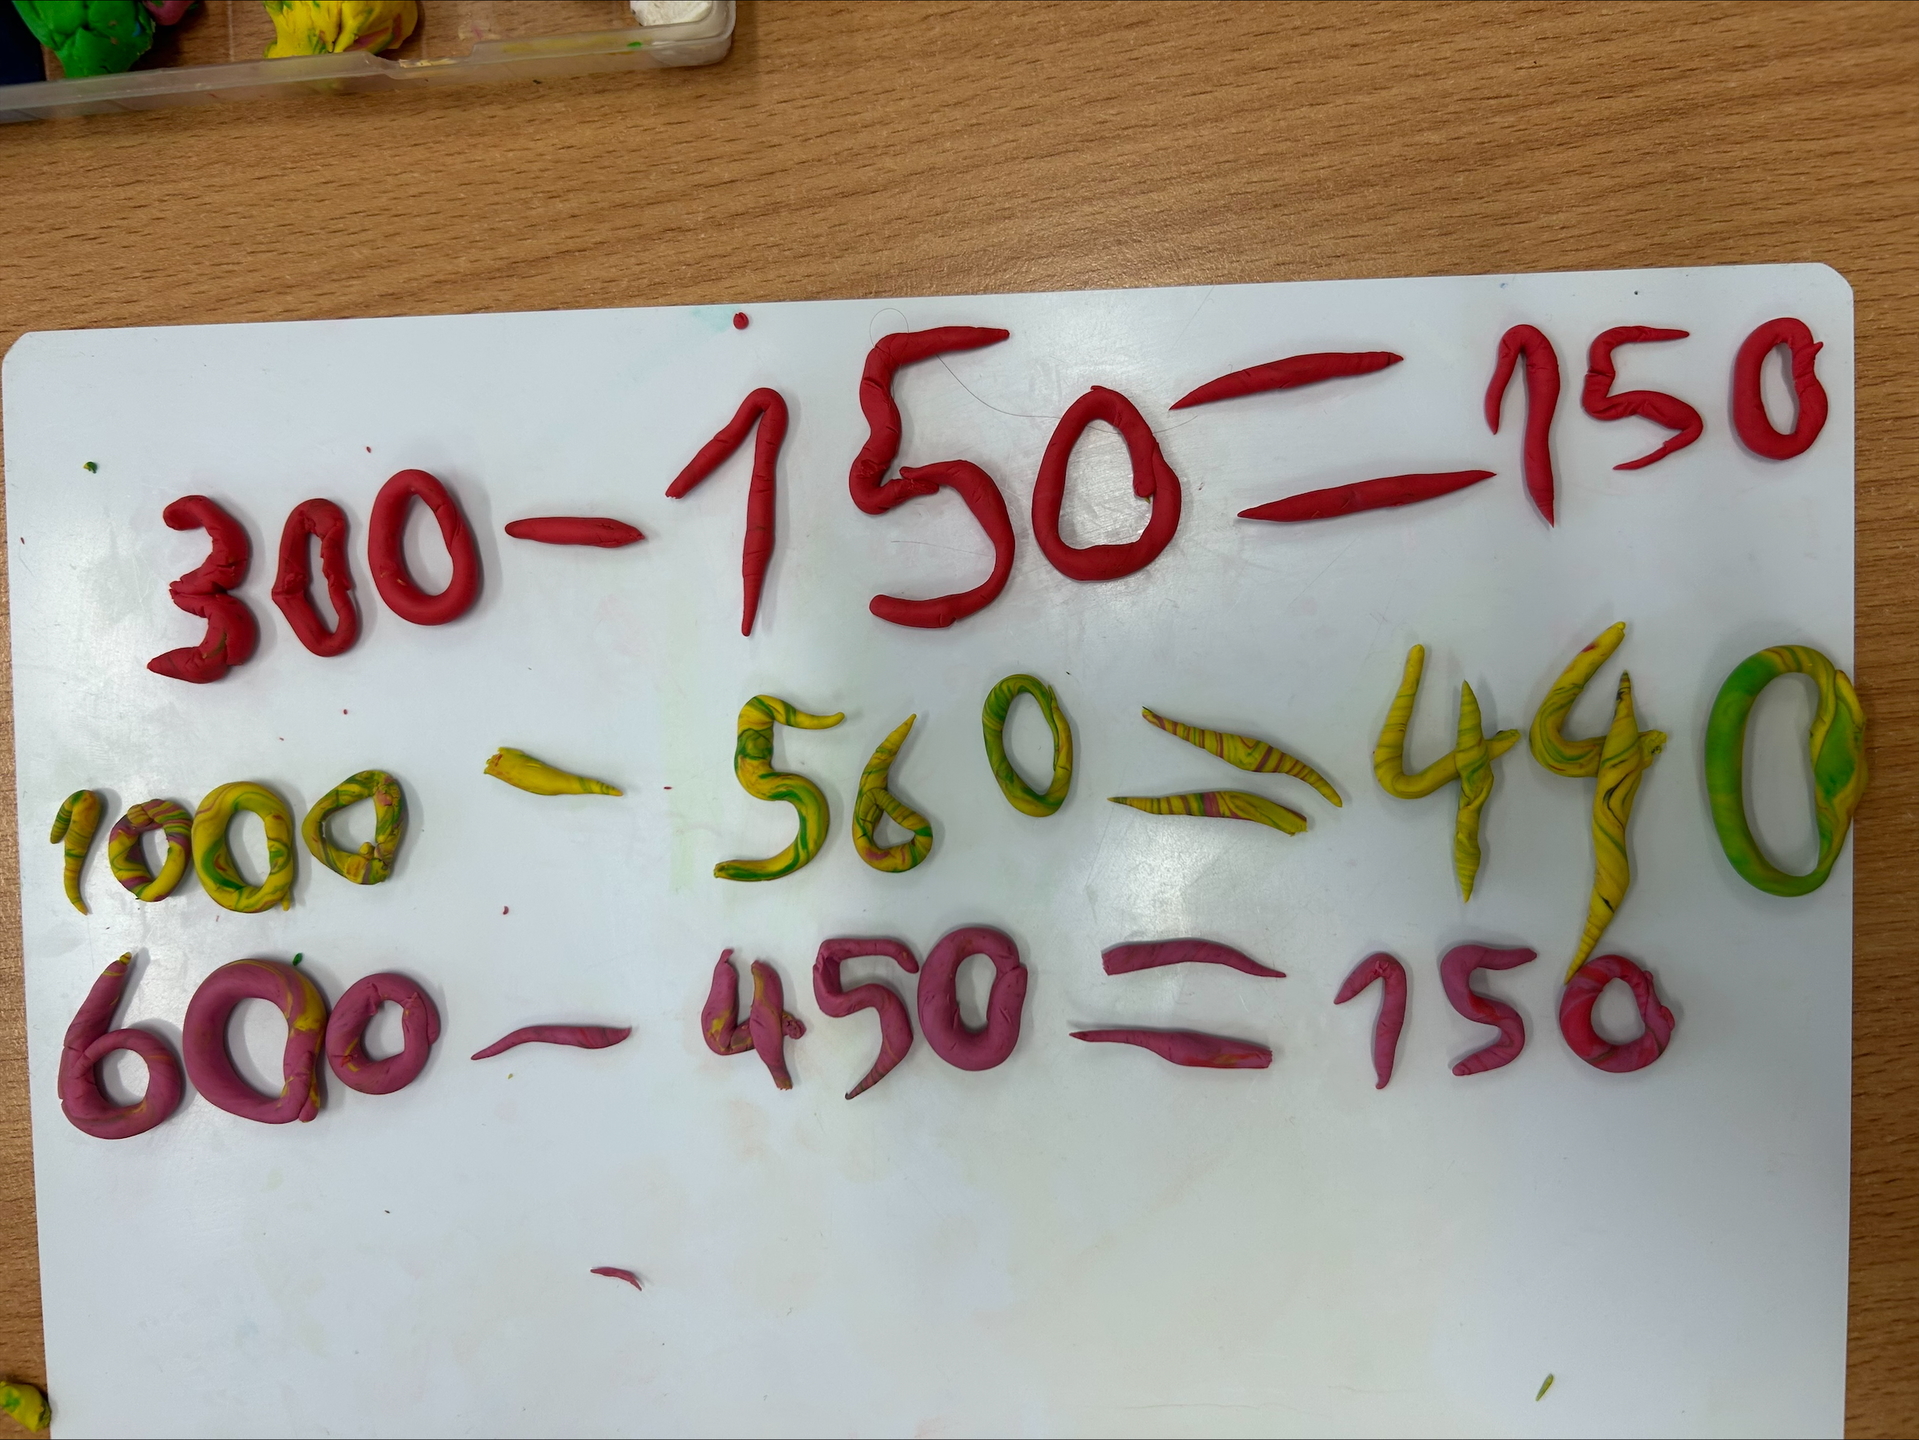 300 - 150 = 150
1000 - 560 = 440
600 - 450 = 150